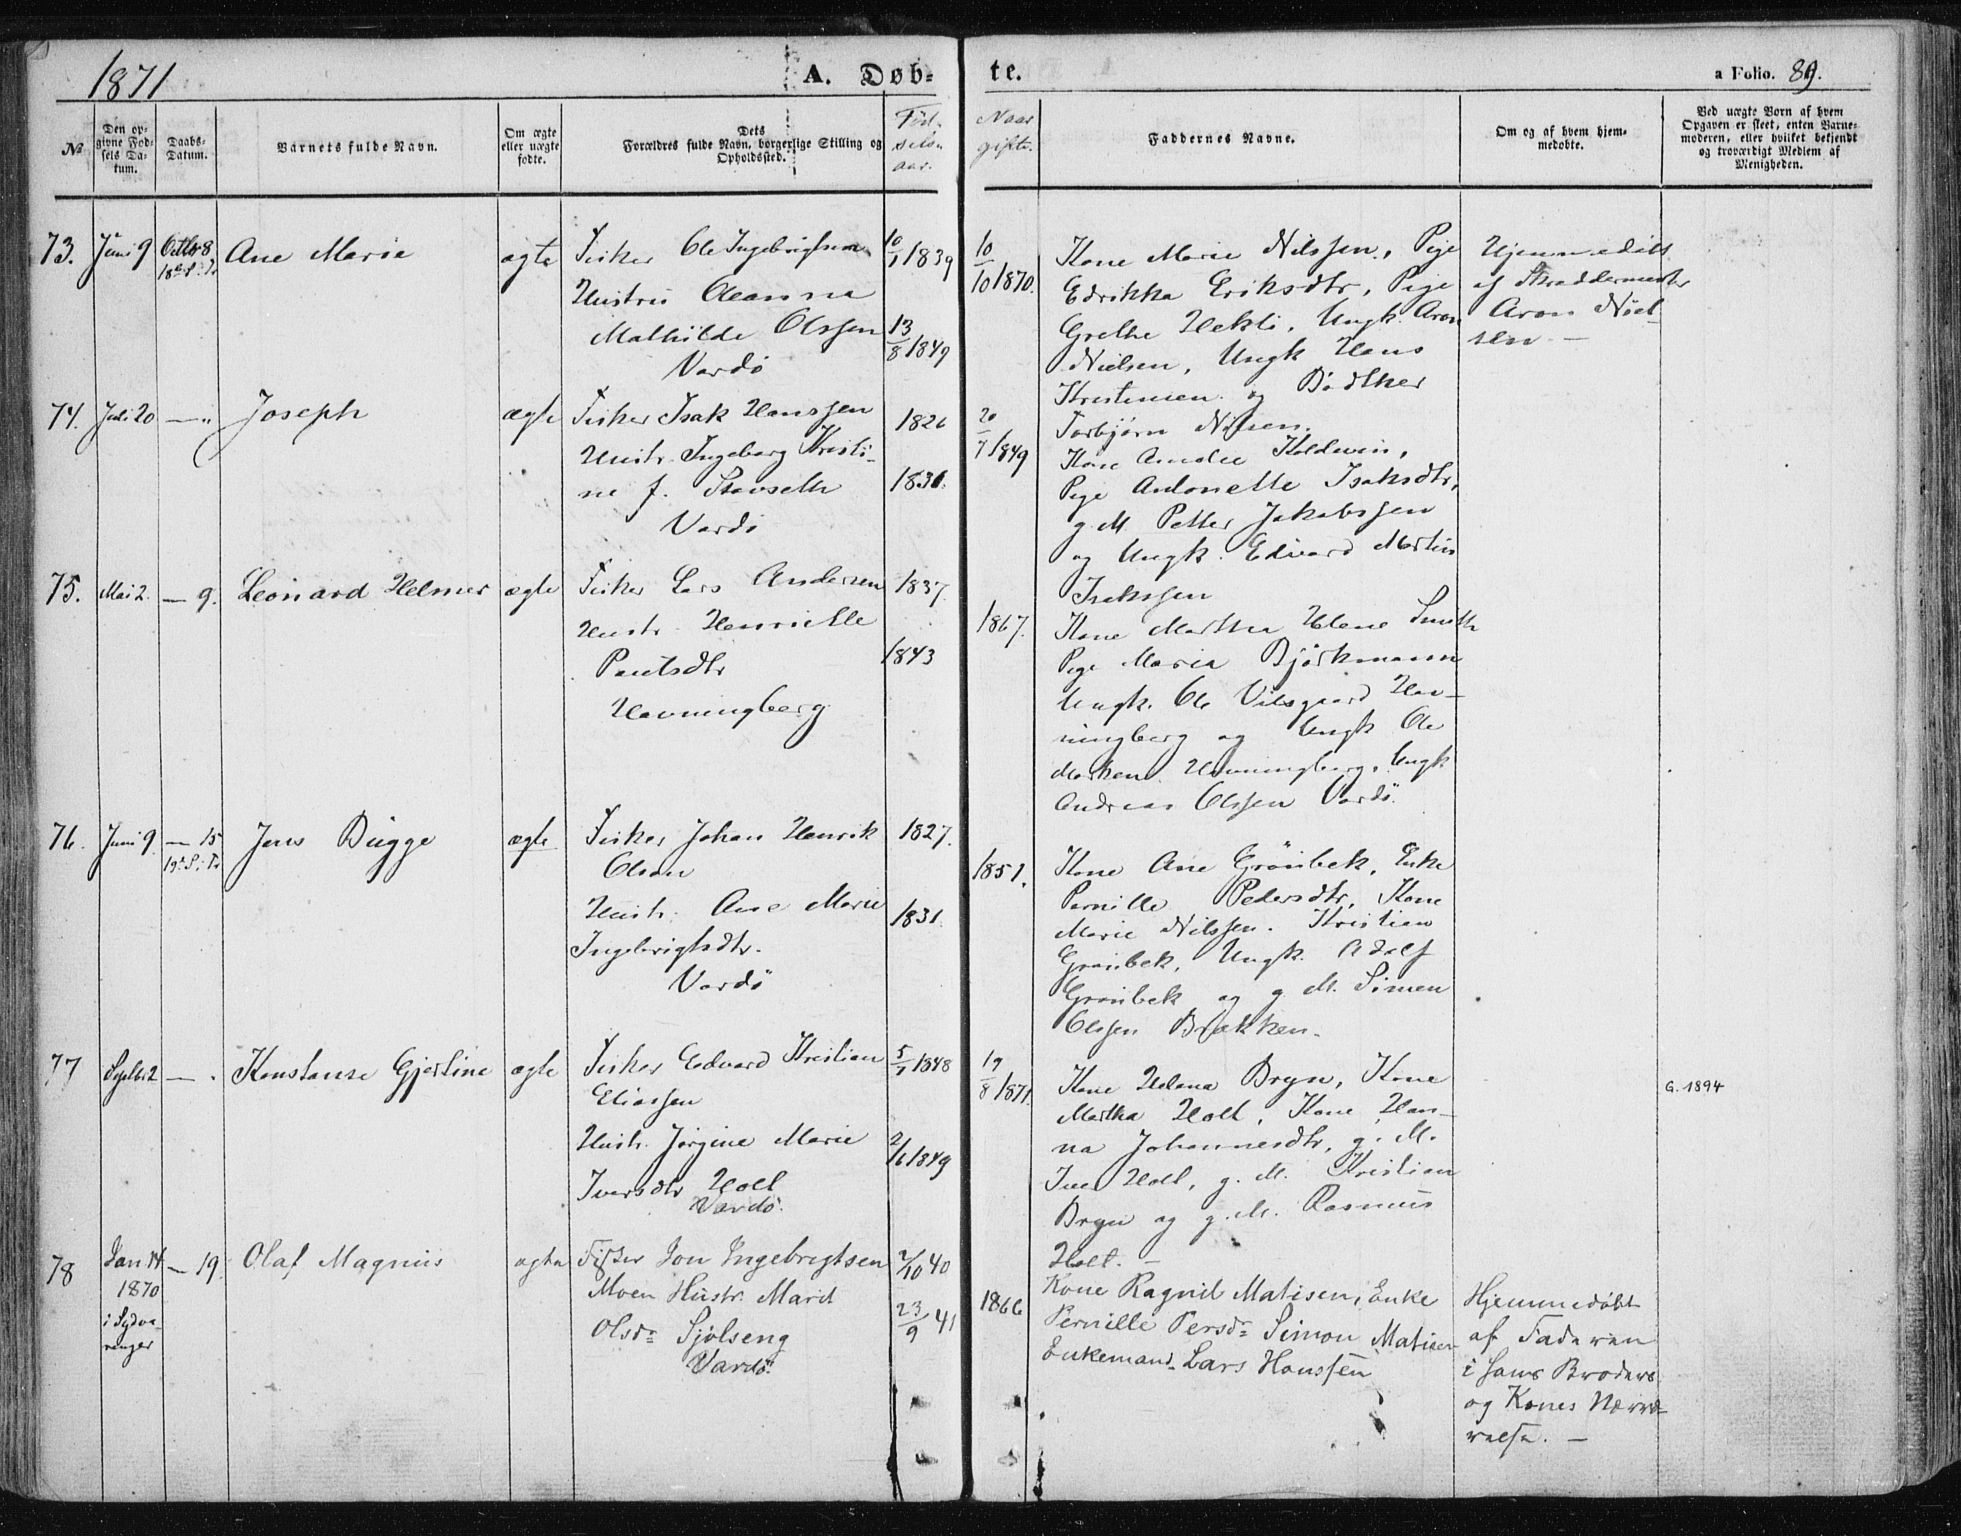 1871
A. Døb-
te.
a Folio. 89.
No
Den op-
givne Fød-
sels Da-
tum.
Daabs-
Datum.
Barnets fulde Navn.
Om ægte
eller uægte
fødte.
Dets
Forældres fulde Navn, borgerlige Stilling og
Opholdssted.
Fød-
sels-
aar.
Naar
gifte.
Faddernes Navne.
Om og af hvem hjem-
medøbte.
Ved uægte Børn af hvem
Opgaven er skeet, enten Barne-
moderen, eller hvilket bekjendt
og troværdigt Medlem af
Menigheden.
73.
Juni 9
Octbr 8
18de S. Tr
Ane Marie
ægte
Fisker Ole Ingebrigtsen
Hustru Oleanna
Mathilde Olssen
Vardø
10/1 1839
13/8 1849
10/10 1870.
Kone Marie Nilssen, Pige
Edrikka Eriksdtr, Pige
Grethe Hekti, Ungk. Aron
Nielsen, Ungk Hans
Kristensen og Bødtker
Torbjørn Nilsen.
Hjemmedøbt
af Skræddermester
Aron Niel-
sen –
74.
Juli 20
— „
Joseph
ægte
Fisker Isak Hanssen
Hustr. Ingeborg Kristi-
ne f. Stavseth
Vardø
1826
1831.
20/7 1849
Kone Amalie Koldevin,
Pige Antonette Isaksdtr,
g. M Petter Jakobssen
og Ungk. Edvard Martin
Isakssen
75.
Mai 2.
— 9.
Leonard Helmer
ægte
Fisker Lars Andersen
Hustr. Henriette
Paulsdtr
Havningberg
1837.
1843
1867.
Kone Martha Helene Smith
Pige Maria Björkmann
Ungk. Ole Vilsgaard Hav-
ningberg og Ungk Ole
Morken Havningberg, Ungk
Andreas Olssen Vardø.
76.
Juni 9.
— 15
19de S. Tr
Jens Bugge
ægte
Fisker Johan Henrik
Olsen
Hustr. Ane Marie
Ingebrigtsdtr.
Vardø
1827.
1831.
1851.
Kone Ane Grönbek, Enke
Pernille Pedersdtr, Kone
Marie Nilssen. Kristian
Grönbek, Ungk. Adolf
Grönbek og g. M. Simen
Olssen Brækken.
77
Septbr 2
— .
Konstanse Gjertine
ægte
Fisker Edvard Kristian
Eliassen
Hustr. Jørgine Marie
Iversdtr Holt
Vardø.
5/1 1848
2/6 1849
19/8 1871.
Kone Helena Bryn, Kone
Martha Holt, Kone Han-
na Johannesdtr, g. M.
Iver Holt, g. M. Kristian
Bryn og g. M. Rasmus
Holt. –
G. 1894
78
Jan 14
1870
i Sydva-
ranger
— 19.
Olaf Magnus
ægte
Fisker Jon Ingebrigtsen
Moen Hustr. Marit
Olsdr Sjølseng
Vardø.
2/10 40
23/9 41
1866
Kone Ragnil Matisen, Enke
Pernille Persdr Simon Matisen
Enkemand Lars Hanssen
Hjemmedøbt
af Faderen
i hans Broders
og Kones Nærvæ-
relse. –